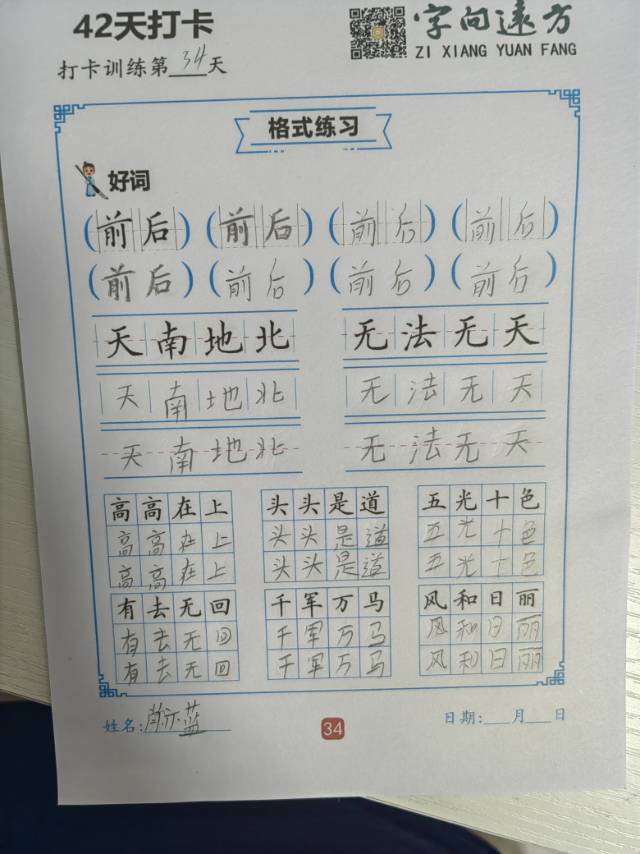 42天打卡
字向远方
ZI XIANG YUAN FANG
打卡训练第34天
格式练习
好词
(前后) (前后) (前后) (前后)
(前后) (前后) (前后) (前后)
天南地北 无法无天
天南地北 无法无天
天南地北 无法无天
高高在上 头头是道 五光十色
高高在上 头头是道 五光十色
高高在上 头头是道 五光十色
有去无回 千军万马 风和日丽
有去无回 千军万马 风和日丽
有去无回 千军万马 风和日丽
姓名: 蓝
34
日期:___月___日